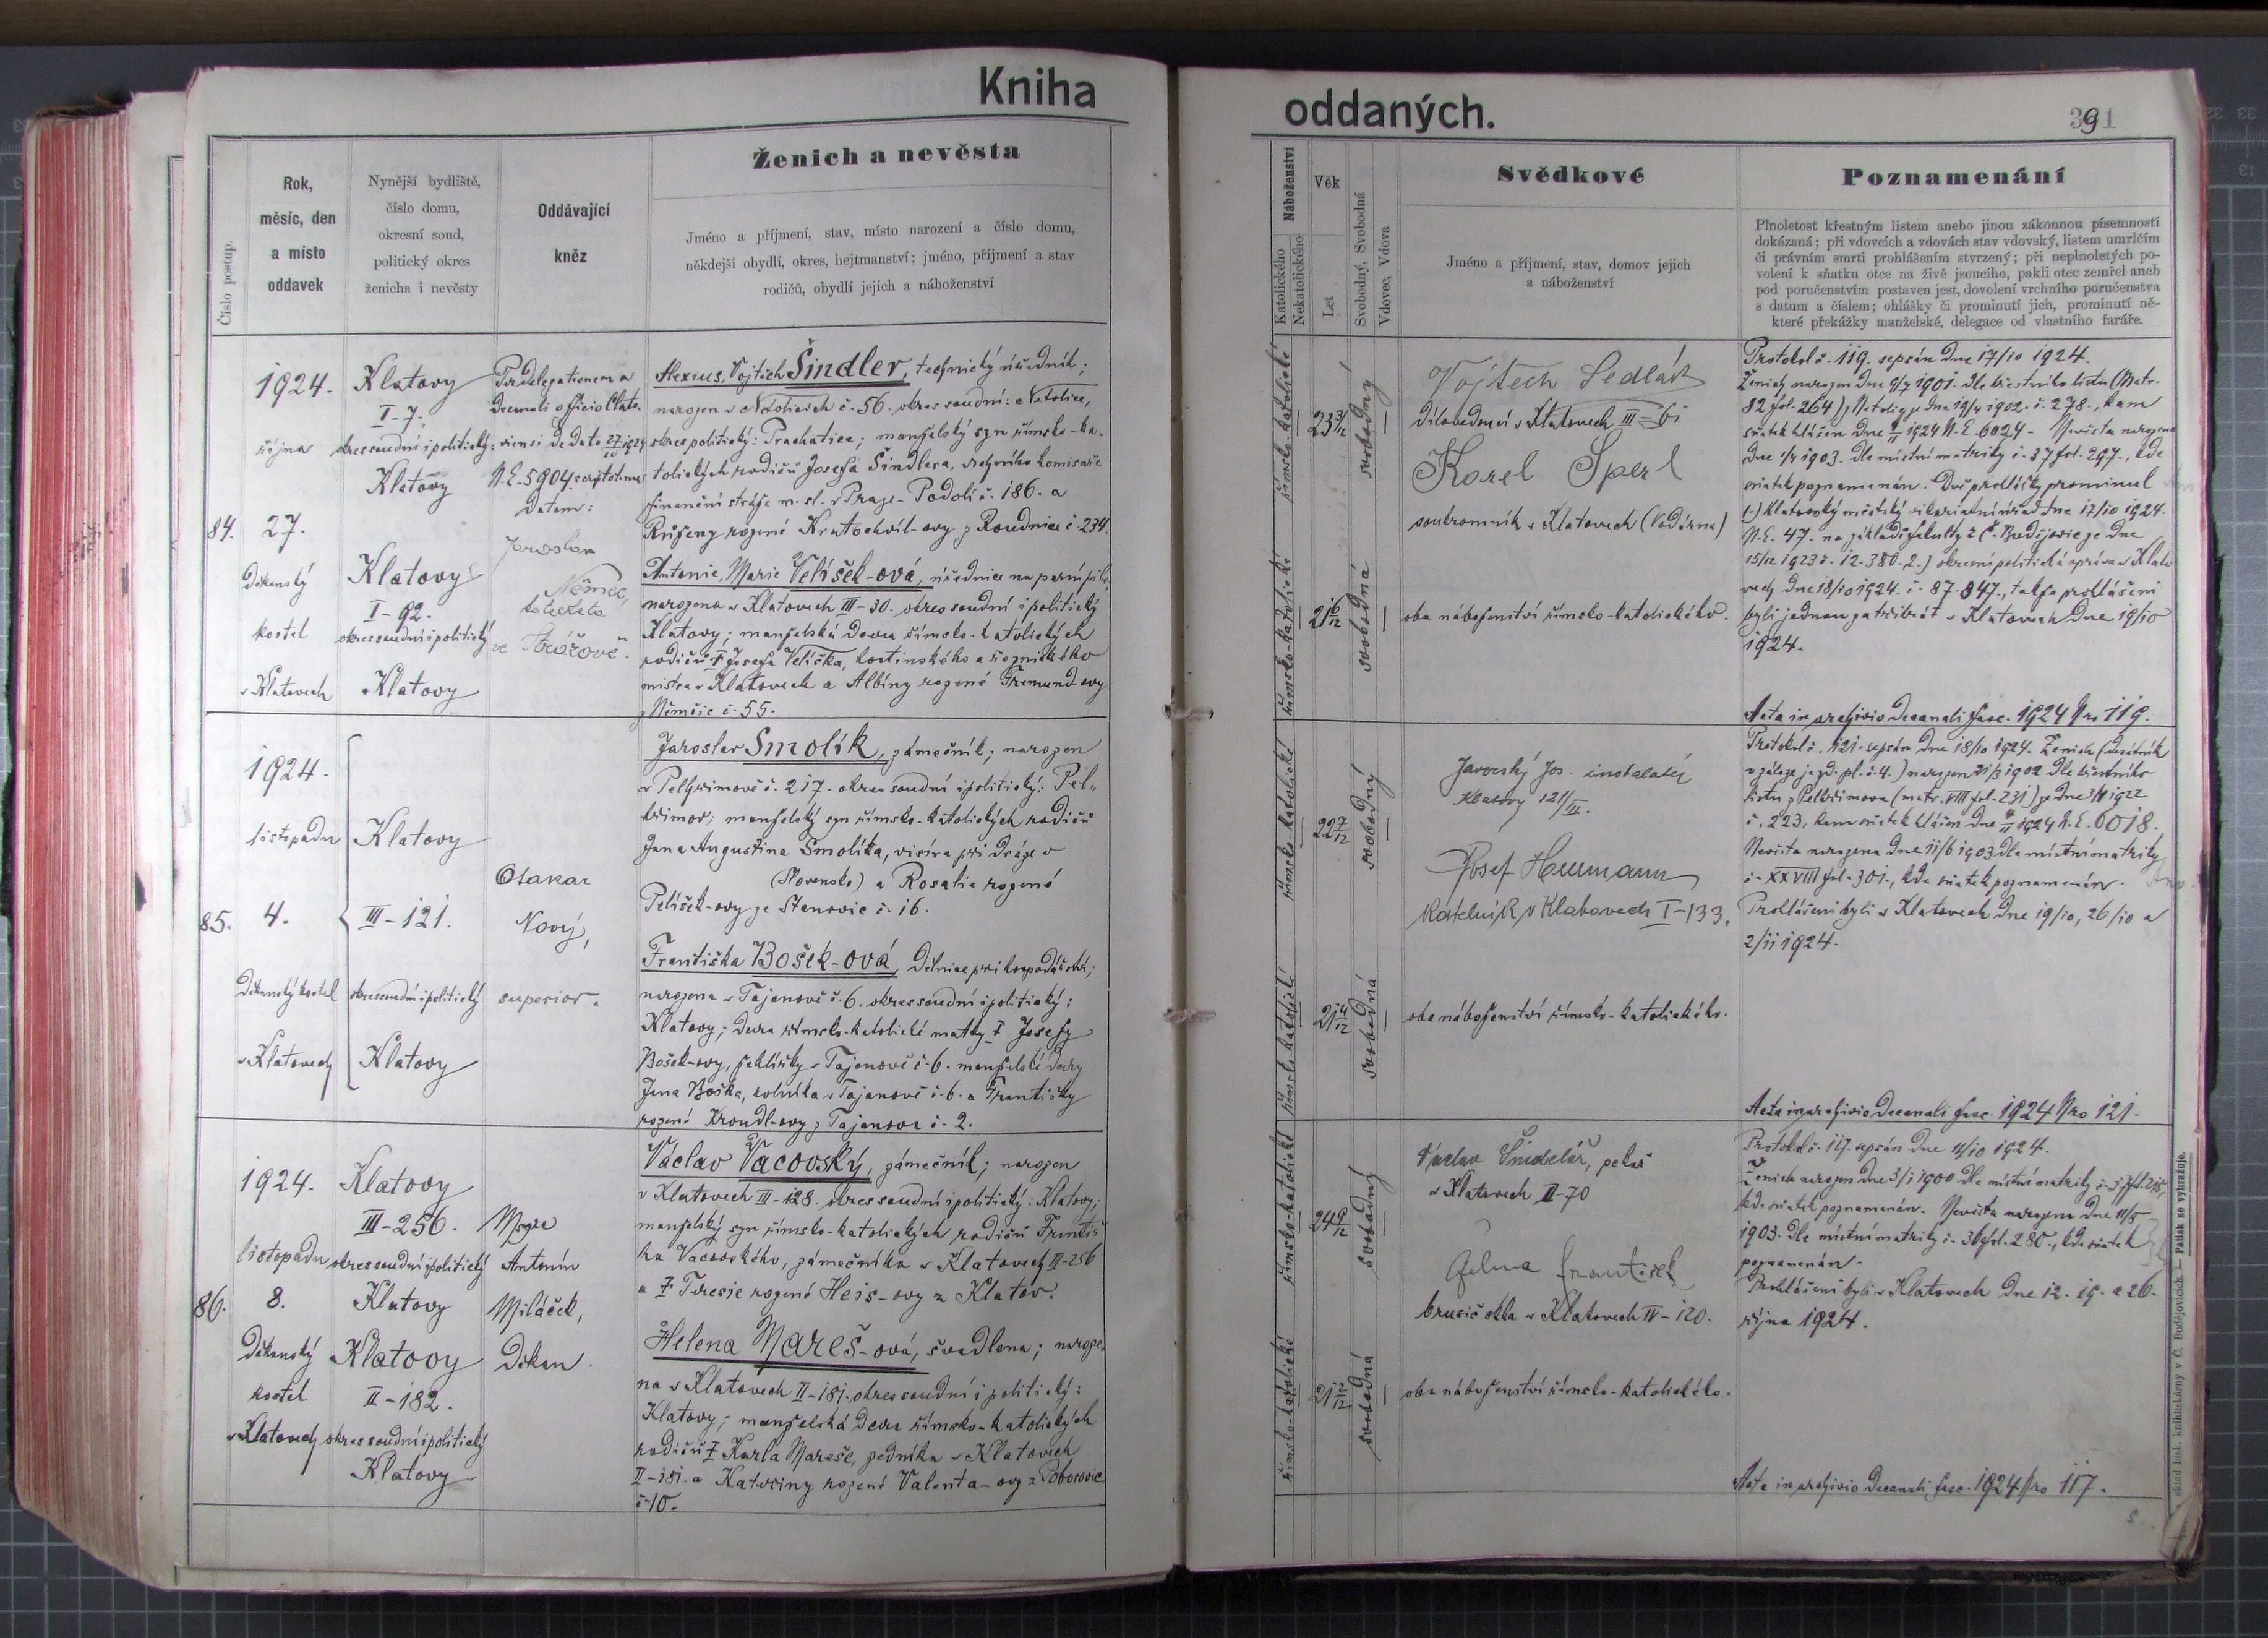 Kniha
oddaných.
391
Číslo postup.
Rok,
měsíc, den
a místo
oddavek
Nynější bydliště,
číslo domu,
okresní soud,
politický okres
ženicha i nevěsty
Oddávající
kněz
Ženich a nevěsta
Jméno a příjmení, stav, místo narození a číslo domu,
někdejší obydlí, okres, hejtmanství; jméno, příjmení a stav
rodičů, obydlí jejich a náboženství
Náboženství
Katolického
Nekatolického
Věk
Let
Svobodný, Svobodná
Vdovec, Vdova
Svědkové
Jméno a příjmení, stav, domov jejich
a náboženství
Poznamenání
Plnoletost křestným listem anebo jinou zákonnou písemností
dokázaná; při vdovcích a vdovách stav vdovský, listem umrlčím
či právním smrti prohlášením stvrzený; při neplnoletých po-
volení k sňatku otce na živě jsoucího, pakli otec zemřel aneb
pod poručenstvím postaven jest, dovolení vrchního poručenstva
s datum a číslem; ohlášky či prominutí jich, prominutí ně-
které překážky manželské, delegace od vlastního faráře.
84.
1924.
října
27.
Děkanský
kostel
v Klatovech
Klatovy
I-7.
okres soudní i politický:
Klatovy
Klatovy
I-92.
okres soudní i politický
Klatovy
Per delegationem a
decanali officio Clato-
viensi de dato 27/10 1924
N.E. 5904
datam:
Jaroslav
Němec,
katecheta
ve Strážově.
Alexius, Vojtěch Šindler, technický úředník;
narozen v Netolicích č. 56. okres soudní: Netolice,
okres politický: Prachatice; manželský syn římsko-ka-
tolických rodičů Josefa Šindlera, vrchního komisaře
finanční stráže m. sl. v Praze-Podolí č. 186. a
Růženy rozené Kratochvíl-ovy z Roudnice č. 234.
Antonie, Marie Velíšek-ová, úřednice na parní pile,
narozena v Klatovech III-30. okres soudní i politický
Klatovy; manželská dcera římsko-katolických
rodičů † Josefa Velíška, hostinského a řeznického
mistra v Klatovech a Albíny rozené Fremund-ovy
z Němčic č. 55.
římsko-katolické
23 3/12
svobodný
římsko-katolické
21 6/12
svobodná
Vojtěch Sedlák
dílovedoucí v Klatovech III-61
Karel Šperl
soukromník v Klatovech (Vodárna)
oba náboženství římsko-katolického.
Protokol č. 119. sepsán dne 17/10 1924.
Ženich narozen dne 9/7 1901. dle křestního listu (Matr.
82 fol. 264) z Netolic ze dne 19/4 1902. č. 278., kam
sňatek hlášen dne 4/11 1924 N.E. 6024 - Nevěsta narozena
dne 1/4 1903. dle místní matriky č. 37 fol. 297., kde
sňatek poznamenán. Dvě prohlášky prominul
1.) Klatovský městský vikariátní úřad dne 17/10 1924.
N.E. 47. na základě fakulty z Č. Budějovic ze dne
15/12 1923 č. 12.380. 2.) okresní politická správa v Klato-
vech dne 18/10 1924. č. 87.847., takže prohlášeni
byli jednou za třikrát v Klatovech dne 19/10
1924.
Acta in archivio Decanali fasc. 1924 Nro 119.
85.
1924.
listopadu
4.
Děkanský kostel
v Klatovech
Klatovy
III-121.
okres soudní i politický
Klatovy
Otakar
Nový,
superior.
Jaroslav Smolík, zámečník; narozen
v Pelhřimově č. 217. okres soudní i politický: Pel-
hřimov; manželský syn římsko-katolických rodičů
Jana Augustina Smolíka, visíra při dráze v
(Slovensko) a Rosalie rozené
Pelíšek-ovy ze Stanovic č. 16.
Františka Bošek-ová, dělnice při hospodářství;
narozena v Tajanově č. 6. okres soudní i politický:
Klatovy; dcera římsko-katolické matky † Josefy
Bošek-ovy, šekličky v Tajanově č. 6. manželské dcery
Jana Boška, rolníka v Tajanově č. 6. a Františky
rozené Kroudl-ovy z Tajanova č. 2.
římsko-katolické
22 7/12
svobodný
římsko-katolické
21 4/12
svobodná
Javorský Jos. instalatér
Klatovy 121/III.
Josef Heumann
kotelník v Klatovech I-133.
oba náboženství římsko-katolického.
Protokol č. 121. sepsán dne 18/10 1924. Ženich (desátník
v záloze jezd. pl. č. 4.) narozen 21/3 1902 dle křestního
listu z Pelhřimova (matr. VIII fol. 231) ze dne 3/4 1922
č. 223, kam sňatek hlášen dne 4/11 1924 N.E. 6018.
Nevěsta narozena dne 11/6 1903 dle místní matriky
č. XXVIII fol. 301., kde sňatek poznamenán.
Prohlášeni byli v Klatovech dne 19/10, 26/10 a
2/11 1924.
Acta in archivio Decanali fasc. 1924 Nro 121.
86.
1924.
listopadu
8.
Děkanský
kostel
v Klatovech
Klatovy
III-256.
okres soudní i politický
Klatovy
Klatovy
II-182.
okres soudní i politický
Klatovy
Msgre
Antonín
Miláček,
Děkan.
Václav Vacovský, zámečník; narozen
v Klatovech III-128. okres soudní i politický: Klatovy;
manželský syn římsko-katolických rodičů Františ-
ka Vacovského, zámečníka v Klatovech III-256
a † Teresie rozené Heis-ovy z Klatov.
Helena Mareš-ová, švadlena; naroze-
na v Klatovech II-181. okres soudní i politický:
Klatovy; manželská dcera římsko-katolických
rodičů † Karla Mareše, zedníka v Klatovech
II-181. a Kateřiny rozené Valenta-ovy z Poborovic
č. 10.
římsko-katolické
24 9/12
svobodný
římsko-katolické
21 5/12
svobodná
Václav Šindelář, pekař
v Klatovech II-70
František
brusič skla v Klatovech IV-120.
oba náboženství římsko-katolického.
Protokol č. 117. sepsán dne 11/10 1924.
Ženich narozen dne 3/1 1900 dle místní matriky č. 37 fol. 215,
kde sňatek poznamenán. Nevěsta narozena dne 11/5
1903. dle místní matriky č. 36 fol. 280., kde sňatek
poznamenán.
Prohlášeni byli v Klatovech dne 12. 19. a 26.
října 1924.
Acta in archivio Decanali fasc. 1924 Nro 117.
sklad bisk. knihtiskárny v Č. Budějovicích. — Patisk se vyhražuje.